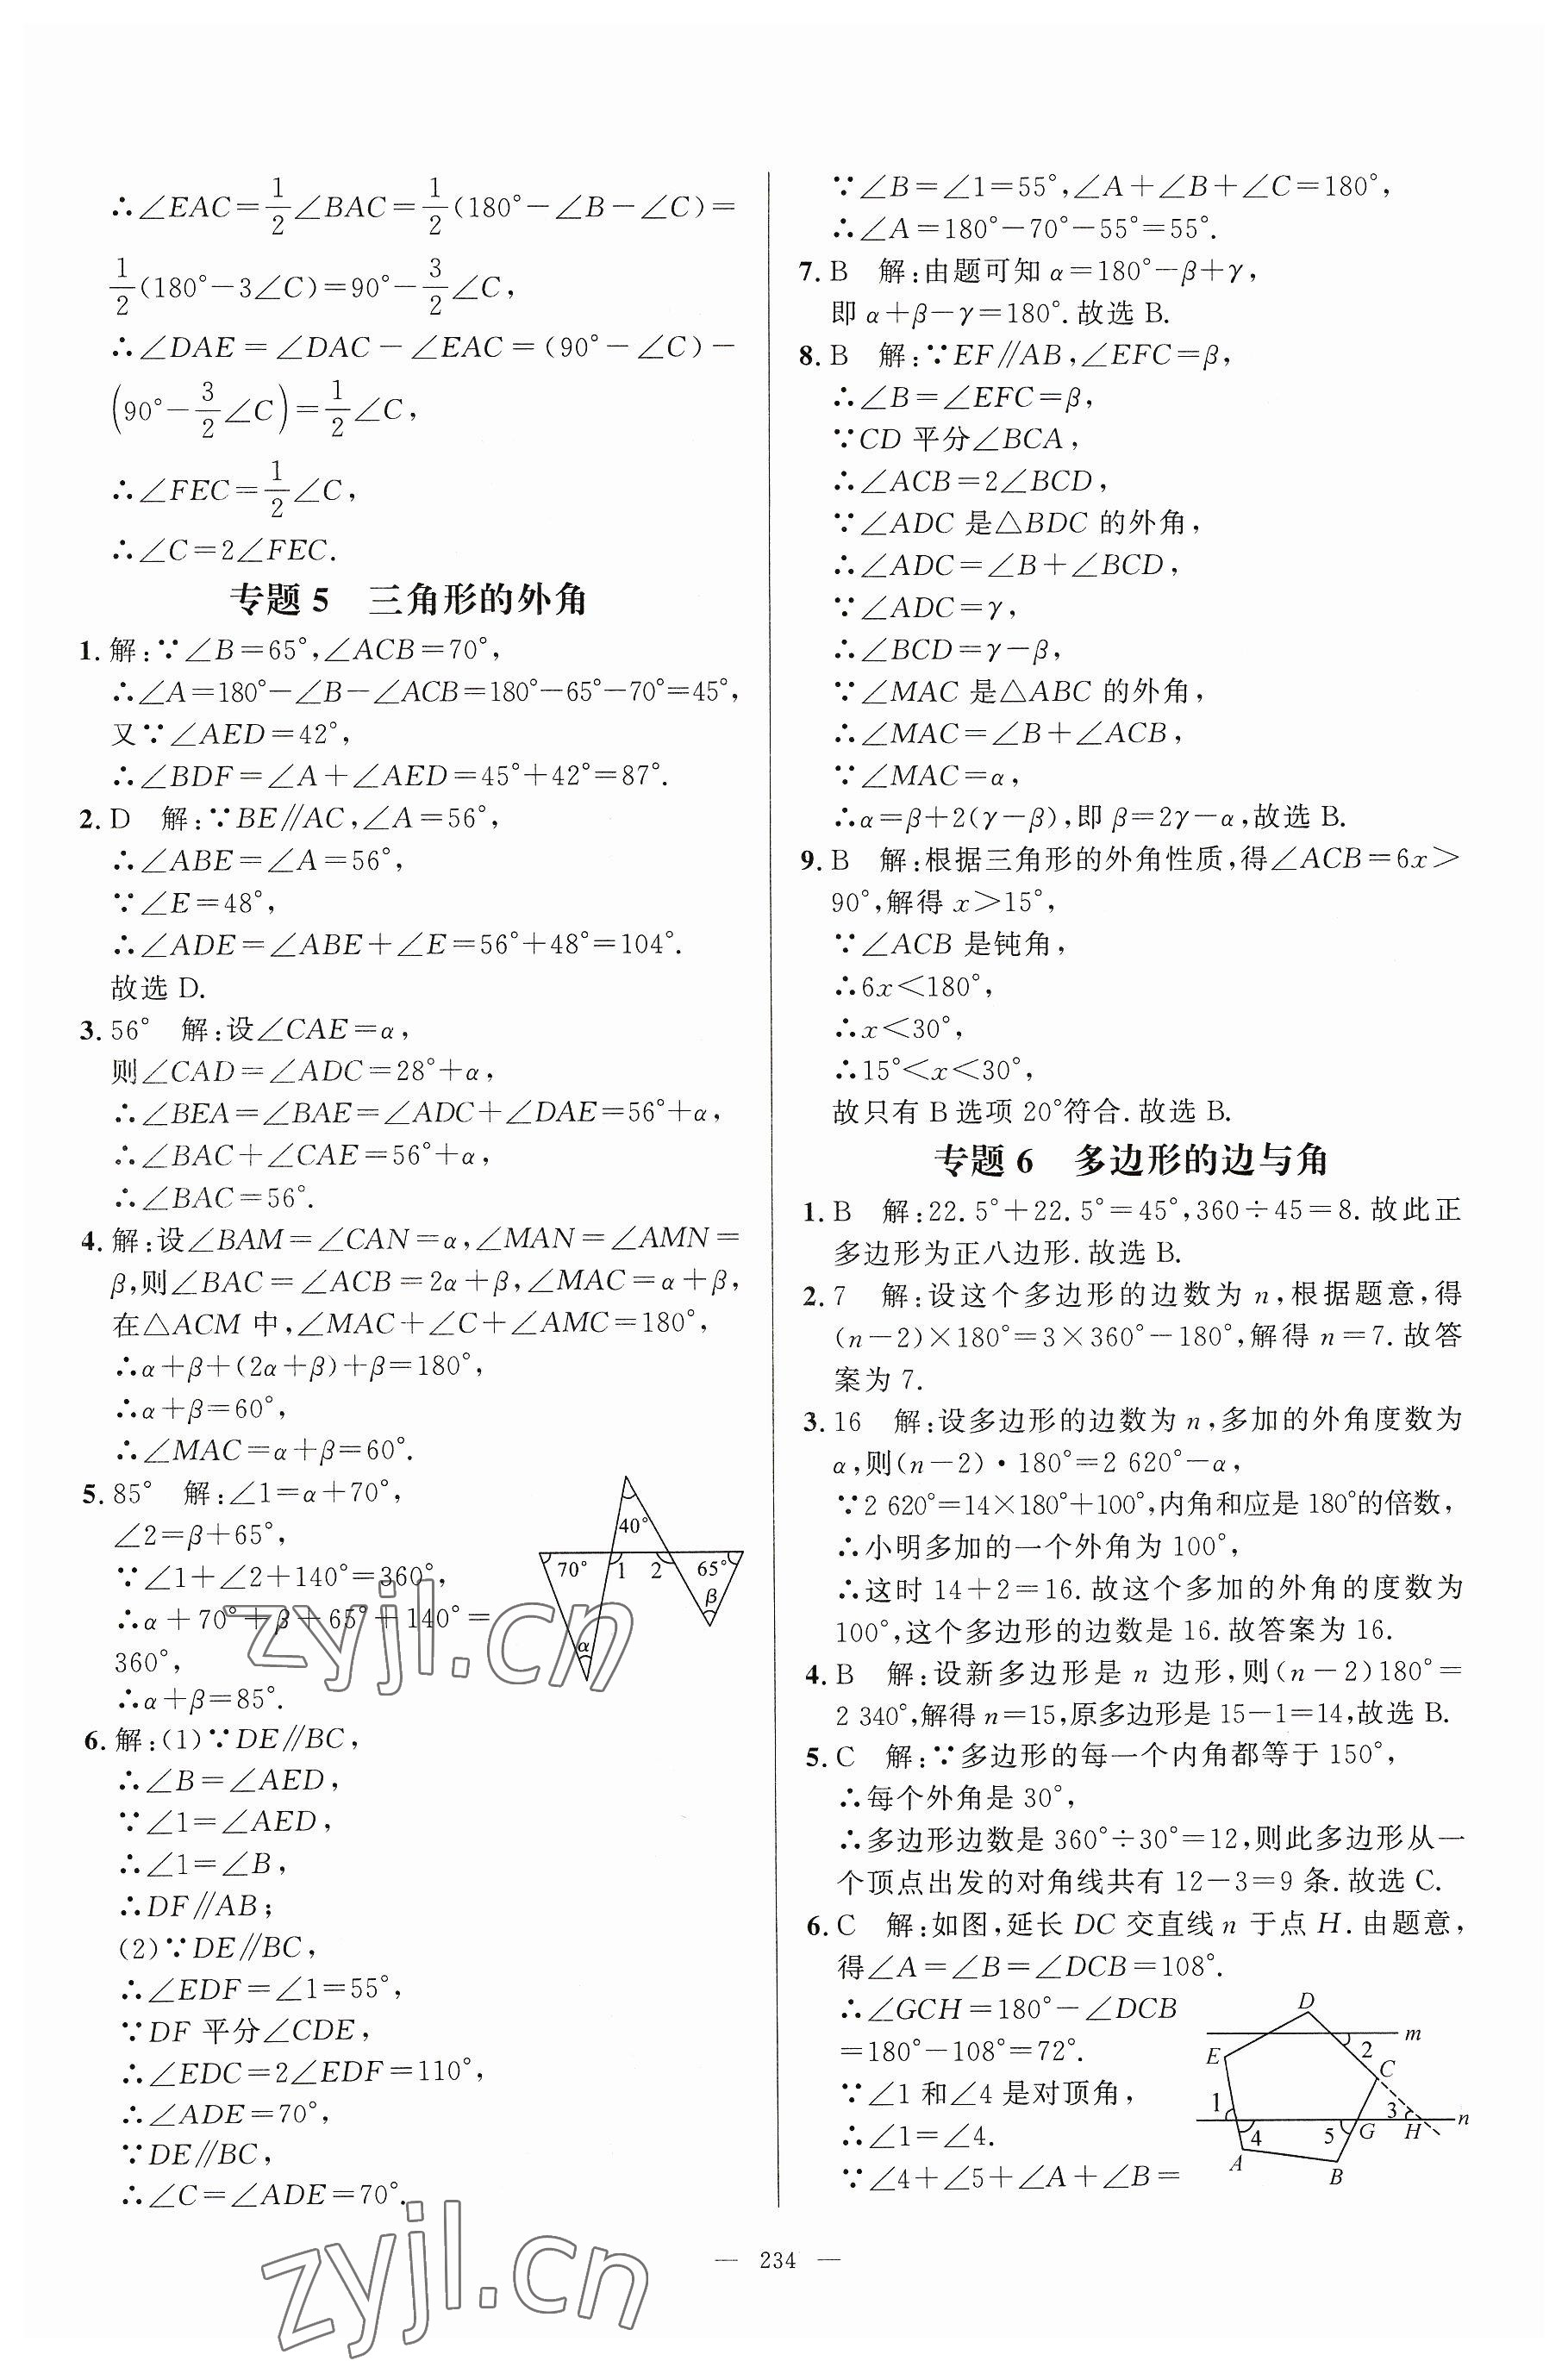 ∴∠EAC=1/2∠BAC=1/2(180°-∠B-∠C)=
1/2(180°-3∠C)=90°-3/2∠C,
∴∠DAE=∠DAC-∠EAC=(90°-∠C)-
(90°-3/2∠C)=1/2∠C,
∴∠FEC=1/2∠C,
∴∠C=2∠FEC.
专题 5 三角形的外角
1. 解:∵∠B=65°,∠ACB=70°,
∴∠A=180°-∠B-∠ACB=180°-65°-70°=45°,
又∵∠AED=42°,
∴∠BDF=∠A+∠AED=45°+42°=87°.
2. D 解:∵BE∥AC,∠A=56°,
∴∠ABE=∠A=56°,
∵∠E=48°,
∴∠ADE=∠ABE+∠E=56°+48°=104°.
故选 D.
3. 56° 解:设∠CAE=α,
则∠CAD=∠ADC=28°+α,
∴∠BEA=∠BAE=∠ADC+∠DAE=56°+α,
∴∠BAC+∠CAE=56°+α,
∴∠BAC=56°.
4. 解:设∠BAM=∠CAN=α,∠MAN=∠AMN=
β,则∠BAC=∠ACB=2α+β,∠MAC=α+β,
在△ACM 中,∠MAC+∠C+∠AMC=180°,
∴α+β+(2α+β)+β=180°,
∴α+β=60°,
∴∠MAC=α+β=60°.
5. 85° 解:∠1=α+70°,
∠2=β+65°,
∵∠1+∠2+140°=360°,
∴α+70°+β+65°+140°=
360°,
∴α+β=85°.
40°
70° 1 2 65°
β
α
6. 解:(1)∵DE∥BC,
∴∠B=∠AED,
∵∠1=∠AED,
∴∠1=∠B,
∴DF∥AB;
(2)∵DE∥BC,
∴∠EDF=∠1=55°,
∵DF 平分∠CDE,
∴∠EDC=2∠EDF=110°,
∴∠ADE=70°,
∵DE∥BC,
∴∠C=∠ADE=70°.
∵∠B=∠1=55°,∠A+∠B+∠C=180°,
∴∠A=180°-70°-55°=55°.
7. B 解:由题可知 α=180°-β+γ,
即 α+β-γ=180°.故选 B.
8. B 解:∵EF∥AB,∠EFC=β,
∴∠B=∠EFC=β,
∵CD 平分∠BCA,
∴∠ACB=2∠BCD,
∵∠ADC 是△BDC 的外角,
∴∠ADC=∠B+∠BCD,
∵∠ADC=γ,
∴∠BCD=γ-β,
∵∠MAC 是△ABC 的外角,
∴∠MAC=∠B+∠ACB,
∵∠MAC=α,
∴α=β+2(γ-β),即 β=2γ-α,故选 B.
9. B 解:根据三角形的外角性质,得∠ACB=6x>
90°,解得 x>15°,
∵∠ACB 是钝角,
∴6x<180°,
∴x<30°,
∴15°<x<30°,
故只有 B 选项 20°符合.故选 B.
专题 6 多边形的边与角
1. B 解:22.5°+22.5°=45°,360÷45=8.故此正
多边形为正八边形.故选 B.
2. 7 解:设这个多边形的边数为 n,根据题意,得
(n-2)×180°=3×360°-180°,解得 n=7.故答
案为 7.
3. 16 解:设多边形的边数为 n,多加的外角度数为
α,则(n-2)·180°=2 620°-α,
∵2 620°=14×180°+100°,内角和应是 180°的倍数,
∴小明多加的一个外角为 100°,
∴这时 14+2=16.故这个多加的外角的度数为
100°,这个多边形的边数是 16.故答案为 16.
4. B 解:设新多边形是 n 边形,则(n-2)180°=
2 340°,解得 n=15,原多边形是 15-1=14,故选 B.
5. C 解:∵多边形的每一个内角都等于 150°,
∴每个外角是 30°,
∴多边形边数是 360°÷30°=12,则此多边形从一
个顶点出发的对角线共有 12-3=9 条.故选 C.
6. C 解:如图,延长 DC 交直线 n 于点 H.由题意,
得∠A=∠B=∠DCB=108°.
∴∠GCH=180°-∠DCB
=180°-108°=72°.
∵∠1 和∠4 是对顶角,
∴∠1=∠4.
∵∠4+∠5+∠A+∠B=
D
m
E 2 C
1 3 n
4 5 G H
A B
zyjl.cn
zyjl.cn
— 234 —